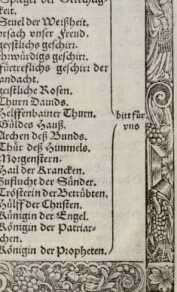 keit.
Stuel der Weißheit.
vrsach vnser Freud.
geystlichs geschirr.
ehrwürdigs geschirr.
fürtreflichs geschirr der
andacht.
geistliche Rosen.
Thurn Dauids.
Helffenbainer Thurn.
Güldes Hauß.
Archen deß Bunds.
Thür deß Himmels.
Morgenstern.
Hail der Krancken.
Zuflucht der Sünder.
Trösterin der Betrübten.
Hülff der Christen.
Künigin der Engel.
Königin der Patriar-
chen.
Königin der Propheten.
bitt für
vns